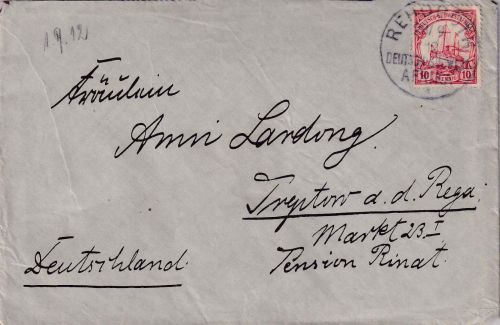 1.9.12
Fräulein
Anni Lardong.
Treptow a. d. Rega.
Markt 23 I
Pension Rinat.
Deutschland.
DEUTSCH
10 10